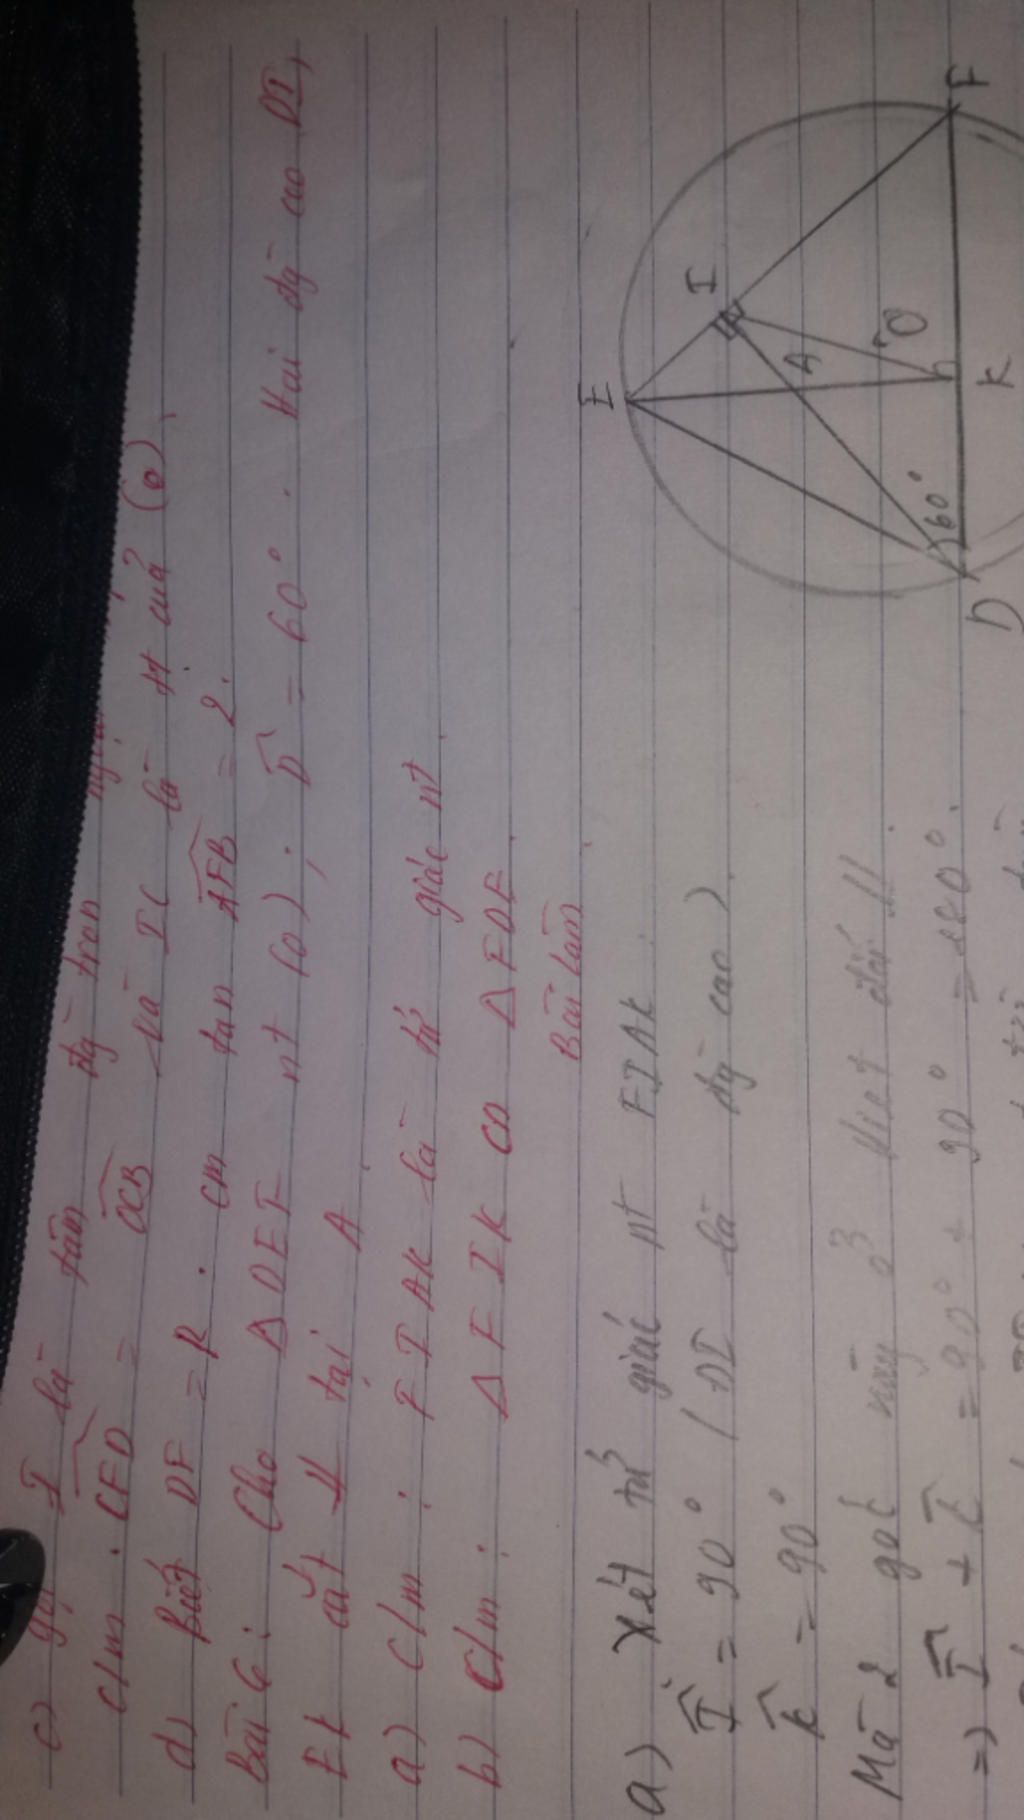 c) gọi I là tâm đg tròn
C/m . CFD = OCB và IC là tt của (O)
d) Biết DF = R . cm tan AFB = 2.
Bài 6: Cho Δ DEF nt (O) ; D = 60° . Hai đg cao DI,
EK cắt tại A
a) C/m : FIAK là tứ giác nt
b) C/m : Δ FIK ∽ Δ FDE
Bài làm
a) Xét tứ giác nt FIAK
I = 90° ( DI là đg cao )
K = 90°
Mà 2 góc này ở vị trí đối //
=) I + K = 90° + 90° = 180°
E
I
A
O
60°
D
K
F